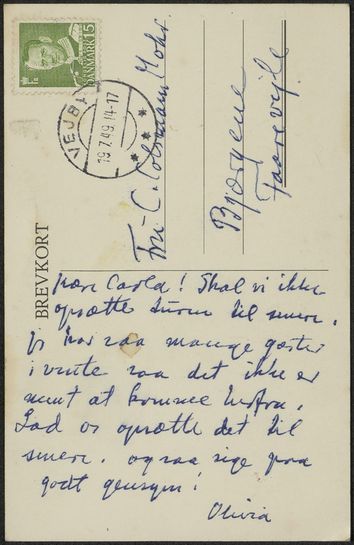 DANMARK 15
VEJBY
19.7.49.14-17
Fru C. Colsmann Mohr.
Bjørgene
Faarevejle
BREVKORT
Kære Carla! Skal vi ikke
opsætte turen til senere.
Vi har saa mange gæster
i vente saa det ikke er
nemt at komme herfra.
Lad os opsætte det til
senere. og saa sige paa
godt gensyn!
Olivia